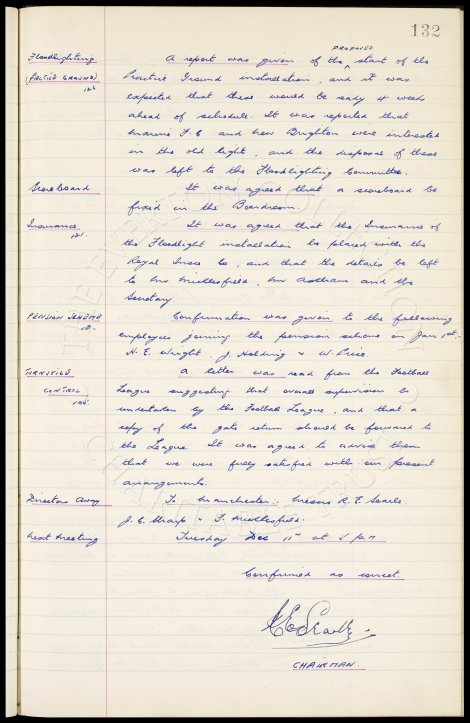 132
Floodlighting A report was given of the PROPOSED start of the
(PRACTICE GROUND) Practice Ground installation, and it was
126 expected that these would be ready 4 weeks
ahead of schedule. It was reported that
Marine F.C and New Brighton were interested
in the old light, and the disposal of these
was left to the Floodlighting Committee.
Scoreboard It was agreed that a scoreboard be
fixed in the Boardroom.
Insurance It was agreed that the Insurance of
121. the Floodlight installation be placed with the
Royal Insce Co, and that the details be left
to Mr Micklesfield, Mr and the
Secretary
PENSION SCHEME Confirmation was given to the following
employees joining the pension scheme on Jan 1st.
H. E. Wright, J. Holding & W. Price.
TURNSTILE A letter was read from the Football
CONTROL League suggesting that overall supervision be
105. undertaken by the Football League, and that a
copy of the gate return should be forwarded to
the League It was agreed to advise them
that we were fully satisfied with our present
arrangements.
Directors Away To Manchester: Messrs R. E. Searle
J. C. Sharp & F. Micklesfield.
Next Meeting Tuesday Dec 11th at 5 p.m
Confirmed as correct.
CHAIRMAN.